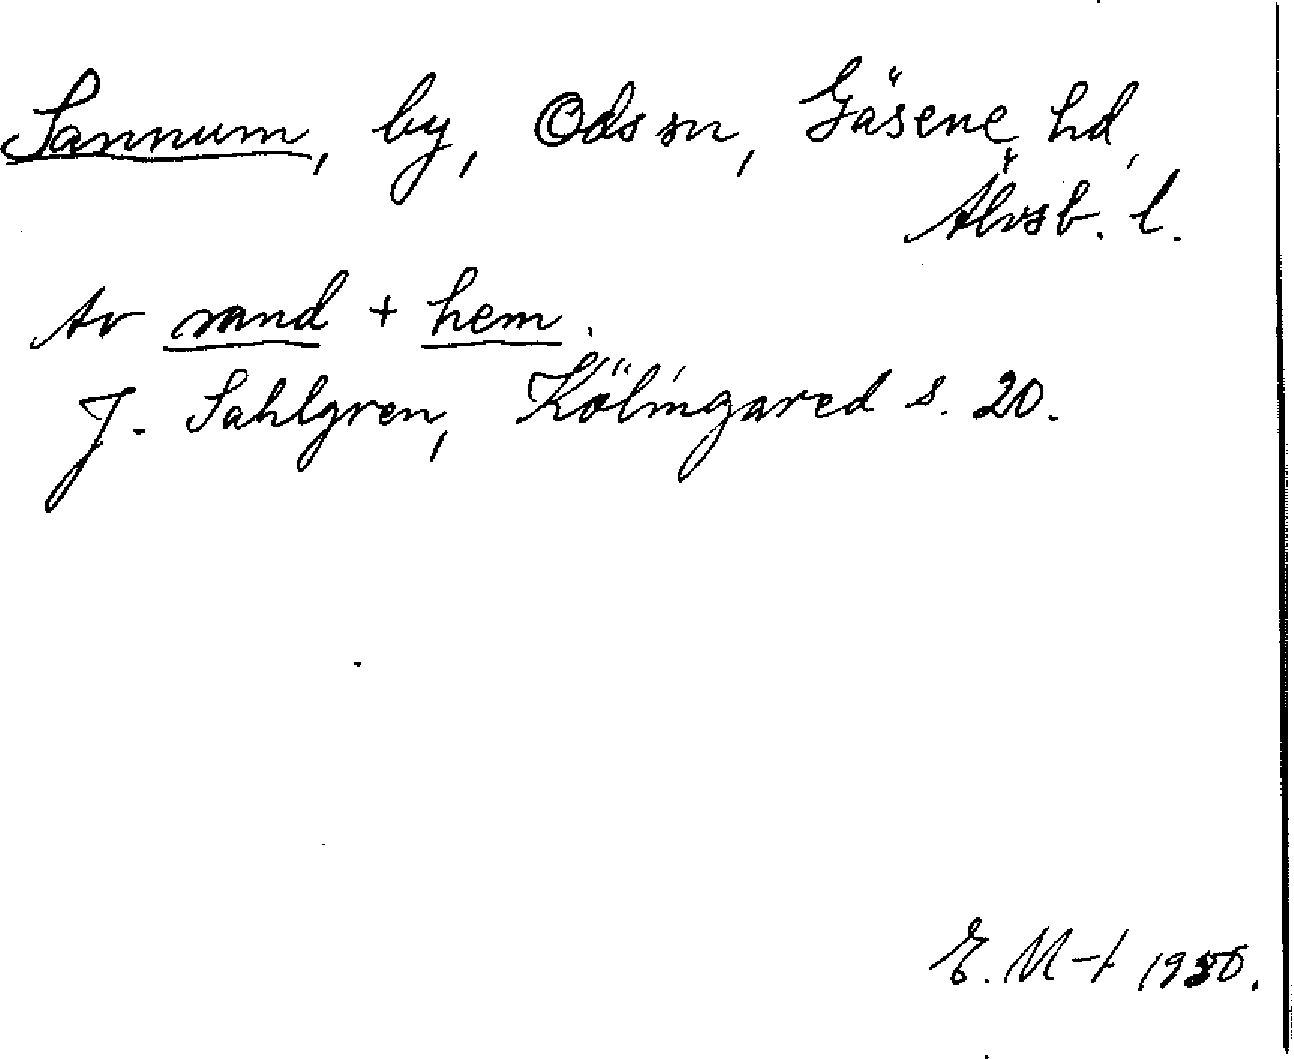 Sannum, by, Ods sn, Gäsene hd,
Älvsb. l.
Av sand + hem.
J. Sahlgren, Kölingared s. 20.
E. M-t 1950.